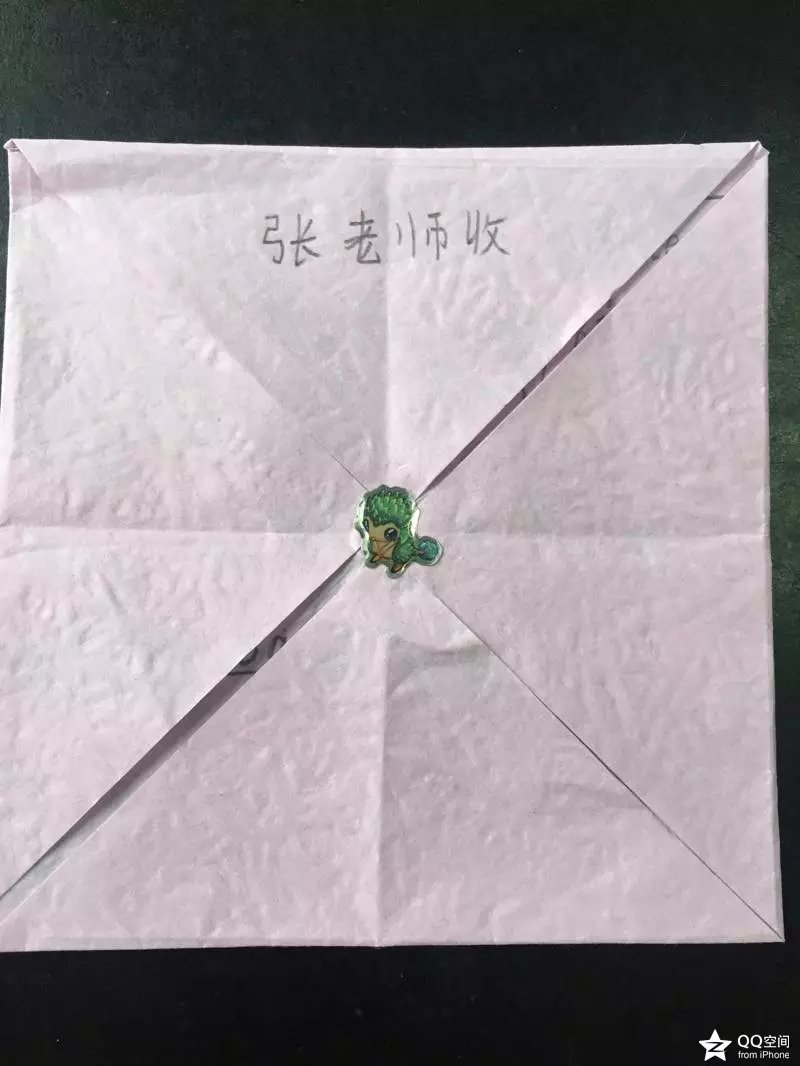 张老师收
QQ空间
from iPhone